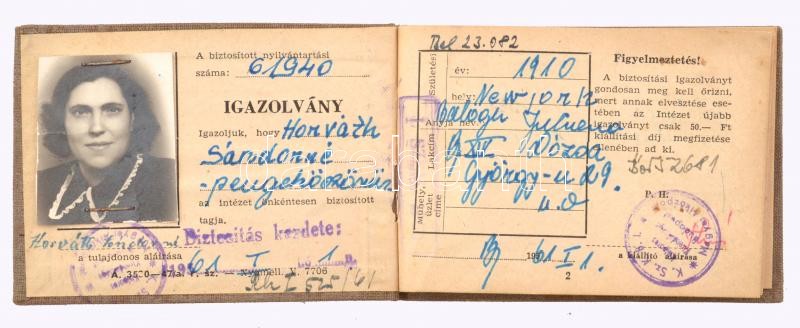 A biztosított nyilvántartási
száma: 61940
IGAZOLVÁNY
Igazoljuk, hogy Horváth
Sándorné
az intézet önkéntesen biztosított
tagja.
Biztosítás kezdete:
Horváth Sándorné
a tulajdonos aláírása
61 I 1
A. 3500-47/a. r. sz. — Nyomell. N. 7706
Bel 23.082
Születési
év: 1910
hely: Newyork
Anyja neve:
Balogh Juliánna
Lakcím
Dózsa
György-u 29.
Műhely,
üzlet
címe
u.a
Bp 1961 I 1.
2
Figyelmeztetés!
A biztosítási igazolványt
gondosan meg kell őrizni,
mert annak elvesztése ese-
tében az Intézet újabb
igazolványt csak 50.— Ft
kiállítási díj megfizetése
ellenében ad ki.
P. H.
a kiállító aláírása